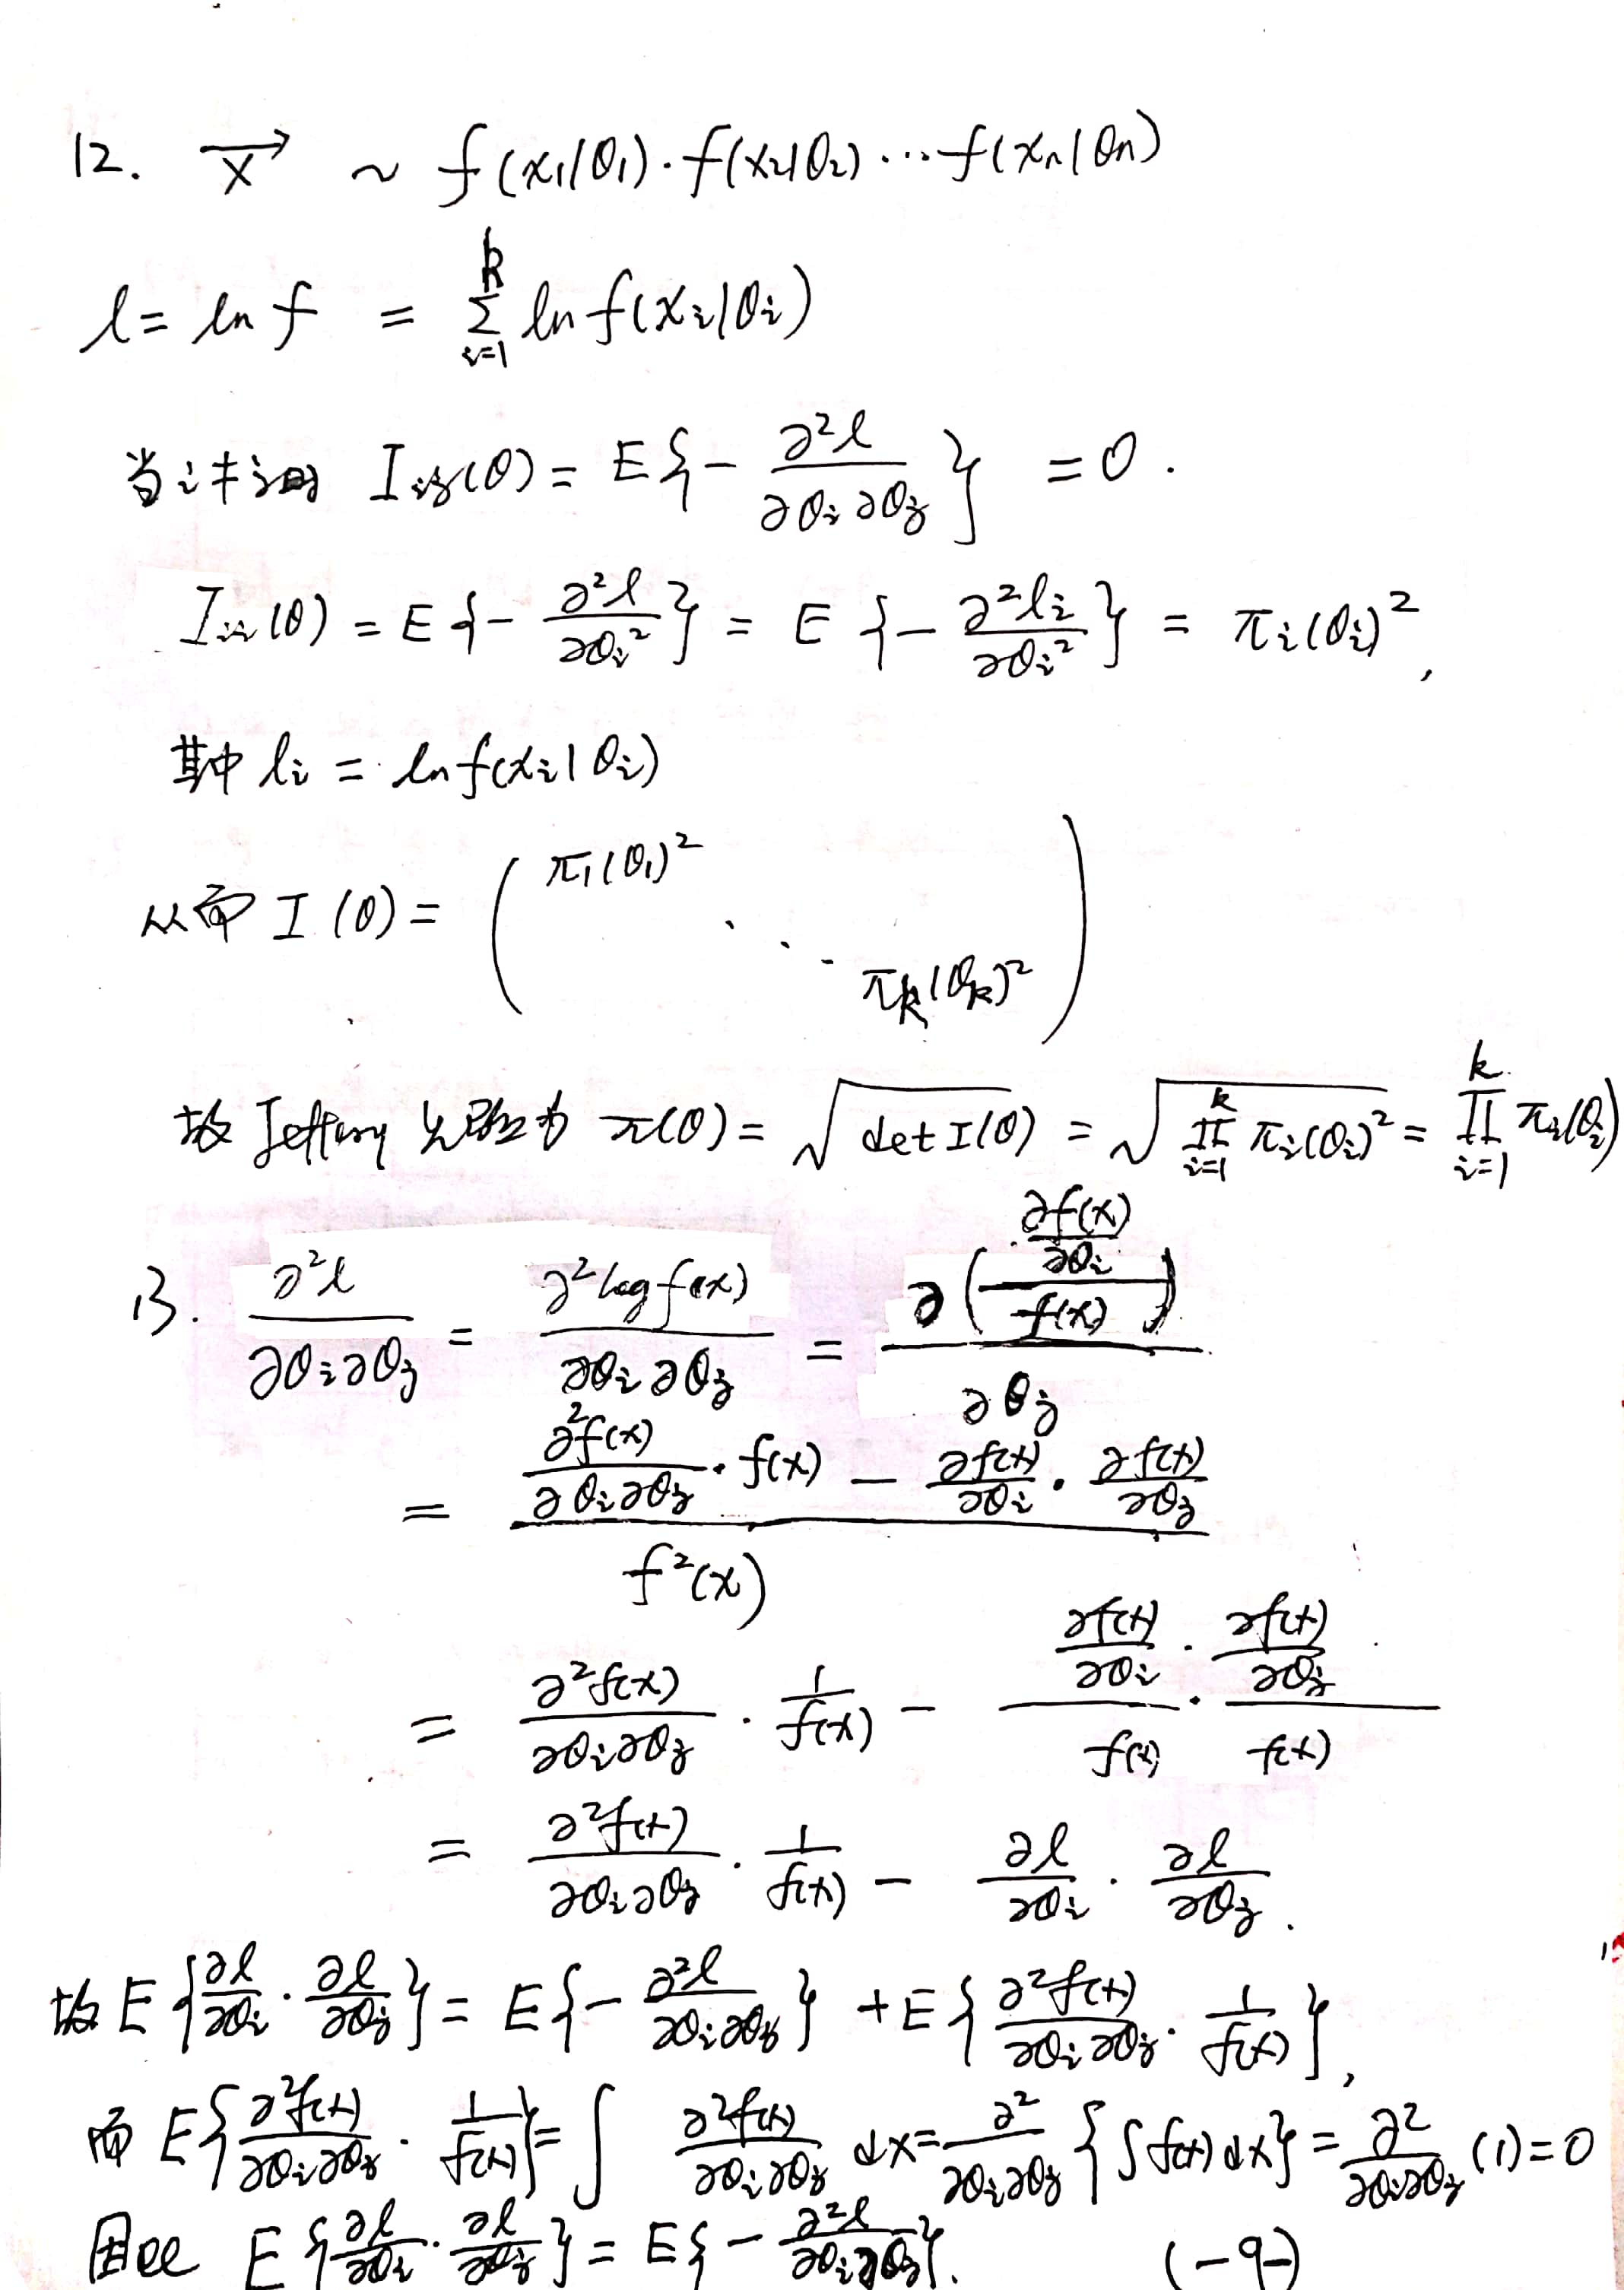 12. $\overrightarrow{X} \sim f(x_1|\theta_1) \cdot f(x_2|\theta_2) \cdots f(x_n|\theta_n)$
$l = \ln f = \sum_{i=1}^{k} \ln f(x_i|\theta_i)$
当 $i \neq j$ 时 $I_{ij}(\theta) = E\{-\frac{\partial^2 l}{\partial\theta_i \partial\theta_j}\} = 0.$
$I_{ii}(\theta) = E\{-\frac{\partial^2 l}{\partial\theta_i^2}\} = E\{-\frac{\partial^2 l_i}{\partial\theta_i^2}\} = \pi_i(\theta_i)^2,$
其中 $l_i = \ln f(x_i|\theta_i)$
从而 $I(\theta) = \begin{pmatrix} \pi_1(\theta_1)^2 & & \\ & \ddots & \\ & & \pi_k(\theta_k)^2 \end{pmatrix}$
故 Jeffrey 先验为 $\pi(\theta) = \sqrt{\det I(\theta)} = \sqrt{\prod_{i=1}^{k} \pi_i(\theta_i)^2} = \prod_{i=1}^{k} \pi_i(\theta_i)$
13. $\frac{\partial^2 l}{\partial\theta_i \partial\theta_j} = \frac{\partial^2 \log f(x)}{\partial\theta_i \partial\theta_j} = \frac{\partial\left(\frac{\frac{\partial f(x)}{\partial\theta_i}}{f(x)}\right)}{\partial\theta_j}$
$= \frac{\frac{\partial^2 f(x)}{\partial\theta_i \partial\theta_j} \cdot f(x) - \frac{\partial f(x)}{\partial\theta_i} \cdot \frac{\partial f(x)}{\partial\theta_j}}{f^2(x)}$
$= \frac{\partial^2 f(x)}{\partial\theta_i \partial\theta_j} \cdot \frac{1}{f(x)} - \frac{\frac{\partial f(x)}{\partial\theta_i}}{f(x)} \cdot \frac{\frac{\partial f(x)}{\partial\theta_j}}{f(x)}$
$= \frac{\partial^2 f(x)}{\partial\theta_i \partial\theta_j} \cdot \frac{1}{f(x)} - \frac{\partial l}{\partial\theta_i} \cdot \frac{\partial l}{\partial\theta_j}.$
故 $E\{\frac{\partial l}{\partial\theta_i} \cdot \frac{\partial l}{\partial\theta_j}\} = E\{-\frac{\partial^2 l}{\partial\theta_i \partial\theta_j}\} + E\{\frac{\partial^2 f(x)}{\partial\theta_i \partial\theta_j} \cdot \frac{1}{f(x)}\},$
而 $E\{\frac{\partial^2 f(x)}{\partial\theta_i \partial\theta_j} \cdot \frac{1}{f(x)}\} = \int \frac{\partial^2 f(x)}{\partial\theta_i \partial\theta_j} dx = \frac{\partial^2}{\partial\theta_i \partial\theta_j}\{\int f(x) dx\} = \frac{\partial^2}{\partial\theta_i \partial\theta_j}(1) = 0$
因此 $E\{\frac{\partial l}{\partial\theta_i} \cdot \frac{\partial l}{\partial\theta_j}\} = E\{-\frac{\partial^2 l}{\partial\theta_i \partial\theta_j}\}.$
(-9-)